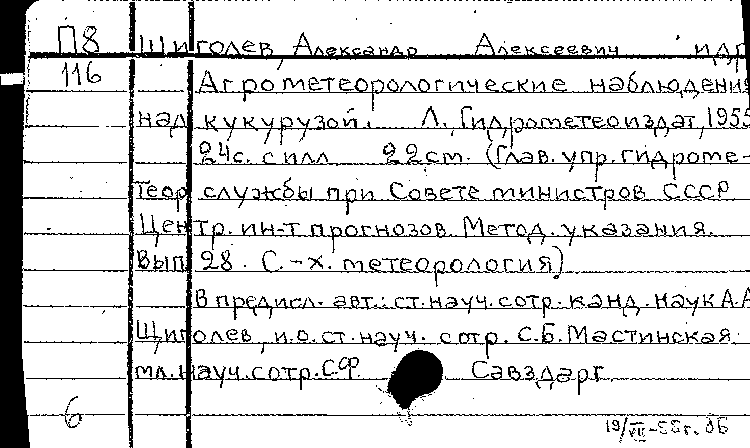 П8 Щиголев, Александр Алексеевич идр
116 Агрометеорологические наблюдения
над кукурузой. Л., Гидрометеоиздат, 1955
24с. с илл 22см. (Глав. упр. гидроме-
теор службы при Совете министров СССР
Центр. ин-т прогнозов. Метод. указания.
Вып 28. С.-х. метеорология)
В предисл. авт.: ст. науч. сотр. канд. наук А.А
Щиголев, и.о. ст. науч. сотр. С.Б. Мастинская
мл. науч. сотр. С.Ф. Савздарг
6 19/VII-55г.